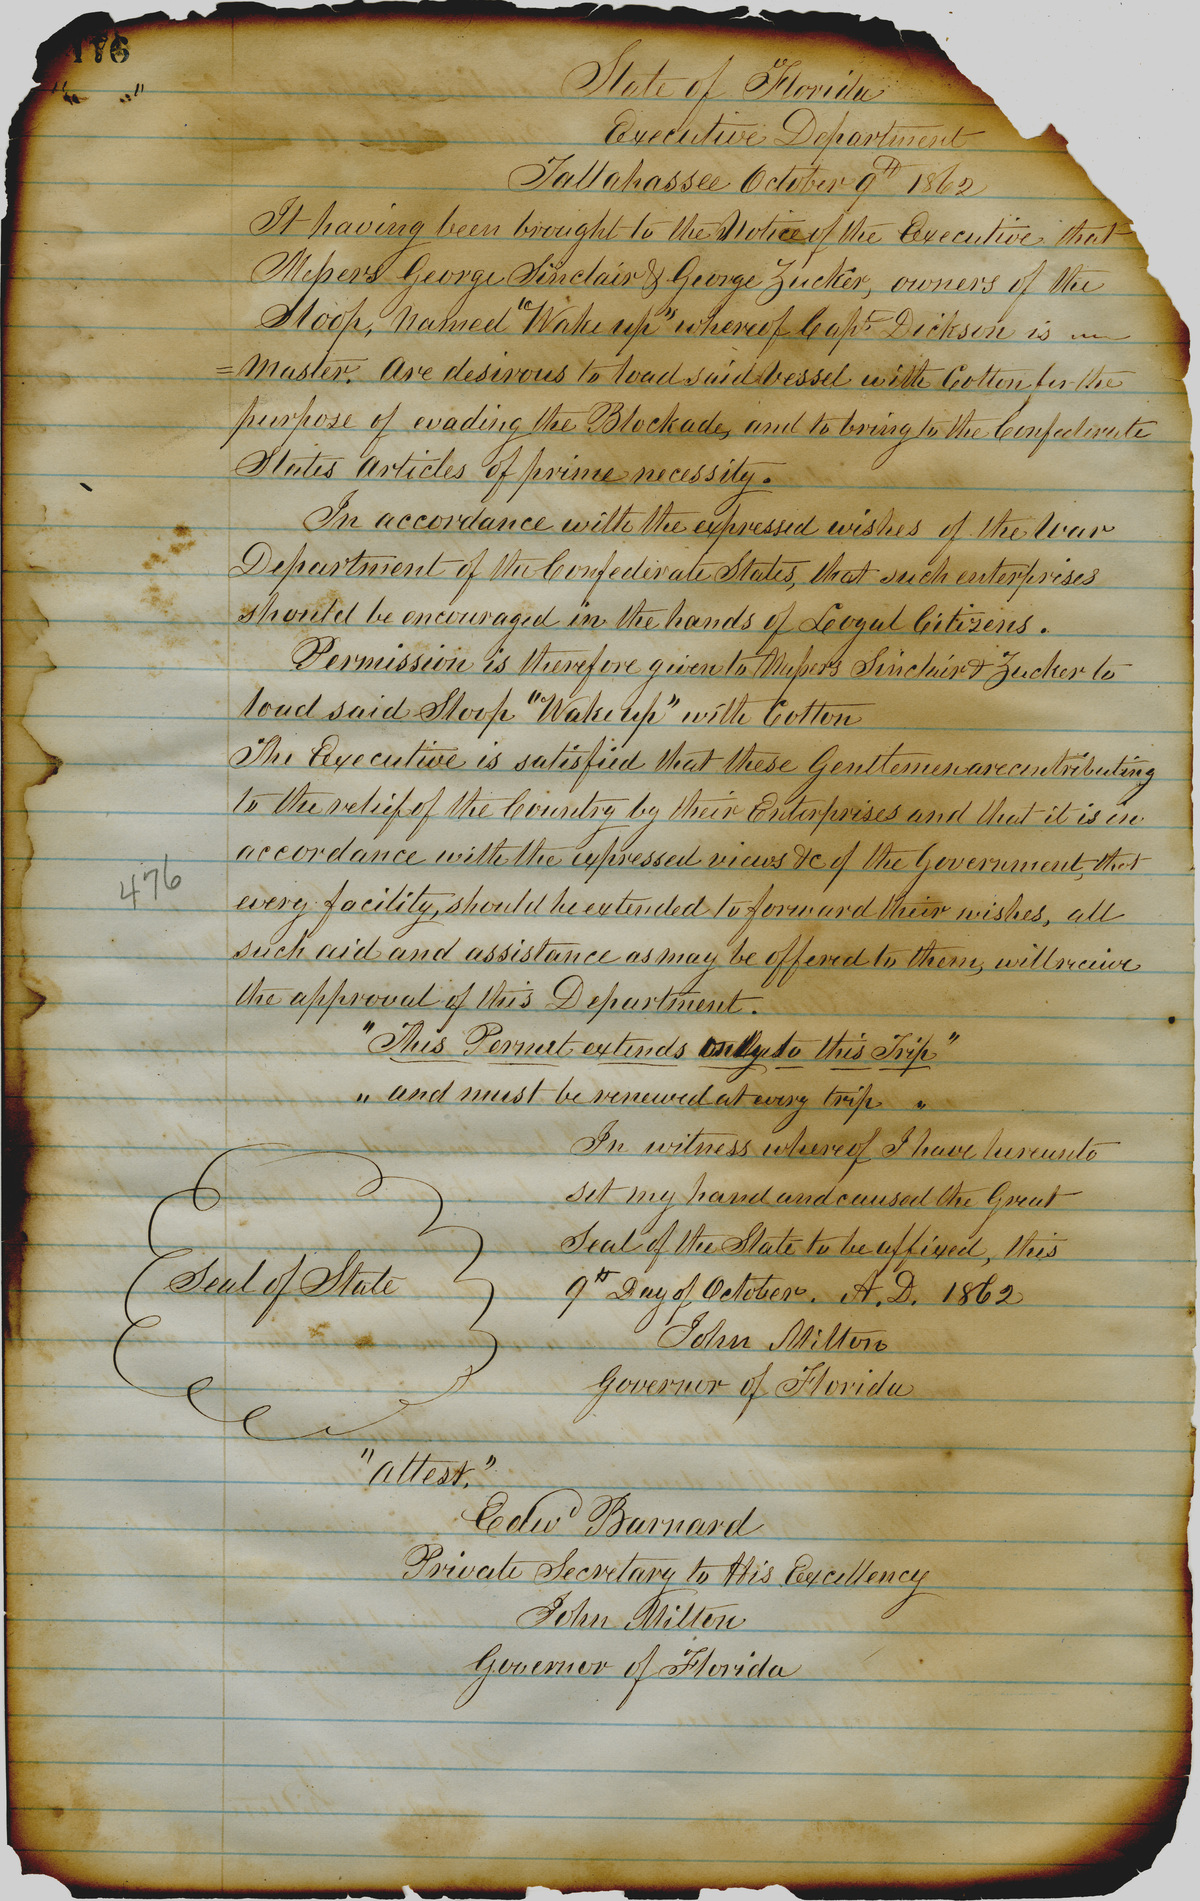 176
" "
State of Florida
Executive Department
Tallahassee October 9th 1862
It having been brought to the Notice of the Executive that
Messers George Sinclair & George Zucker, owners of the
Sloop, named "Wake up" whereof Capt Dickson is
=Master. Are desirous to load said vessel with Cotton for the
purpose of evading the Blockade, and to bring to the Confederate
States articles of prime necessity.
In accordance with the expressed wishes of the War
Department of the Confederate States, that such enterprises
should be encouraged in the hands of Loyal Citizens.
Permission is therefore given to Messers Sinclair & Zucker to
load said Sloop "Wake up" with Cotton
The Executive is satisfied that these Gentlemen are contributing
to the relief of the Country by their Enterprises and that it is in
accordance with the expressed views &c of the Government, that
every facility, should be extended to forward their wishes, all
such aid and assistance as may be offered to them, will receive
the approval of this Department.
"This Permit extends only to this Trip"
" and must be renewed at every trip "
In witness whereof I have hereunto
set my hand and caused the Great
Seal of the State to be affixed, this
9th Day of October. A.D. 1862
John Milton
Governor of Florida
Seal of State
476
"Attest."
Edwd Barnard
Private Secretary to His Excellency
John Milton
Governor of Florida